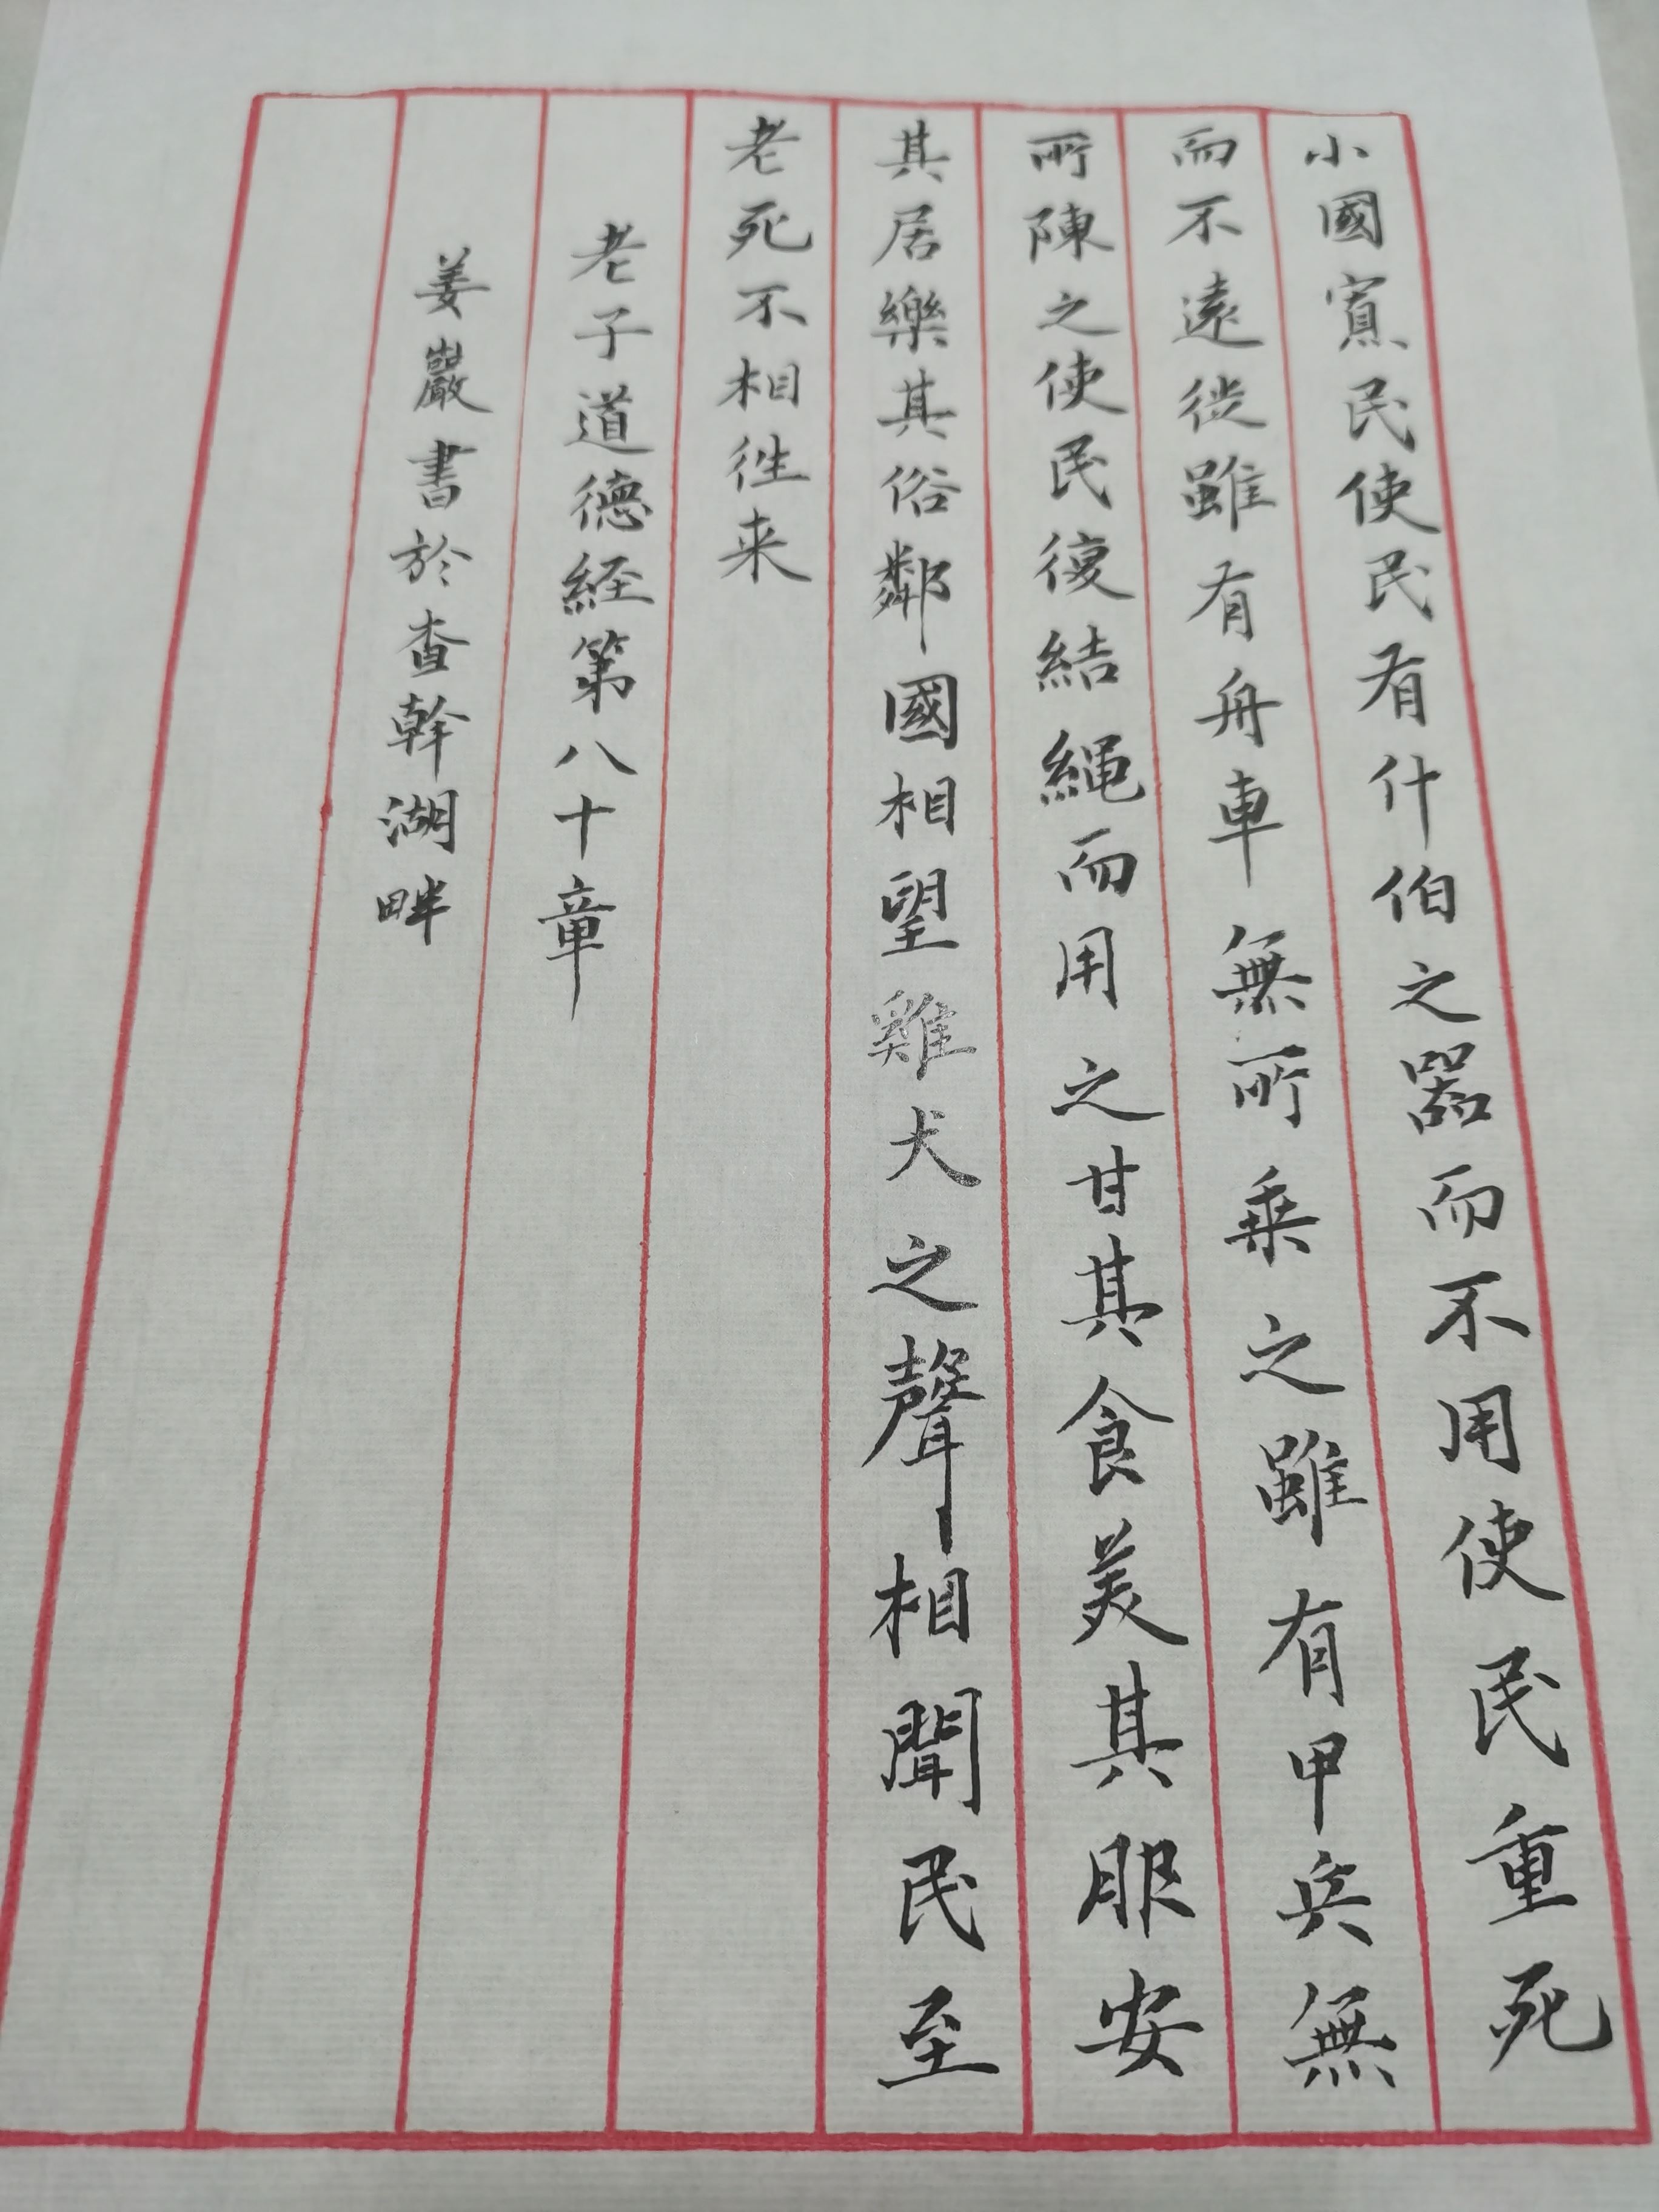 小國寡民使民有什伯之器而不用使民重死
而不遠徙雖有舟車無所乗之雖有甲兵無
所陳之使民復結繩而用之甘其食美其服安
其居樂其俗鄰國相望雞犬之聲相聞民至
老死不相往来
老子道德経第八十章
姜巖書於查幹湖畔